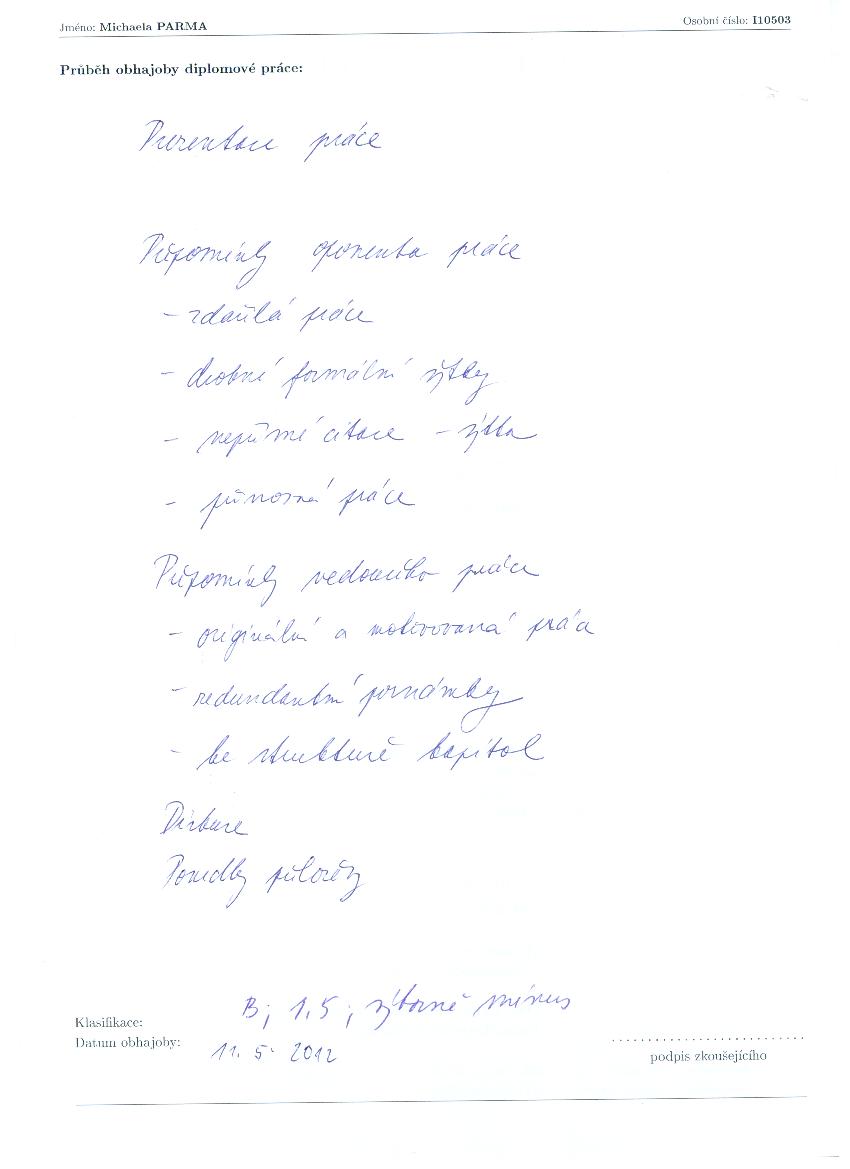 Jméno: Michaela PARMA Osobní číslo: I10503
Průběh obhajoby diplomové práce:
Prezentace práce
Připomínky oponenta práce
- zdařilá práce
- drobné formální výtky
- nepřímé citace - výtka
- přínosná práce
Připomínky vedoucího práce
- originální a motivovaná práce
- redundantní poznámky
- ke struktuře kapitol
Diskuse
Posudky přiloženy
Klasifikace: B; 1,5; výborně mínus
Datum obhajoby: 11. 5. 2012
podpis zkoušejícího